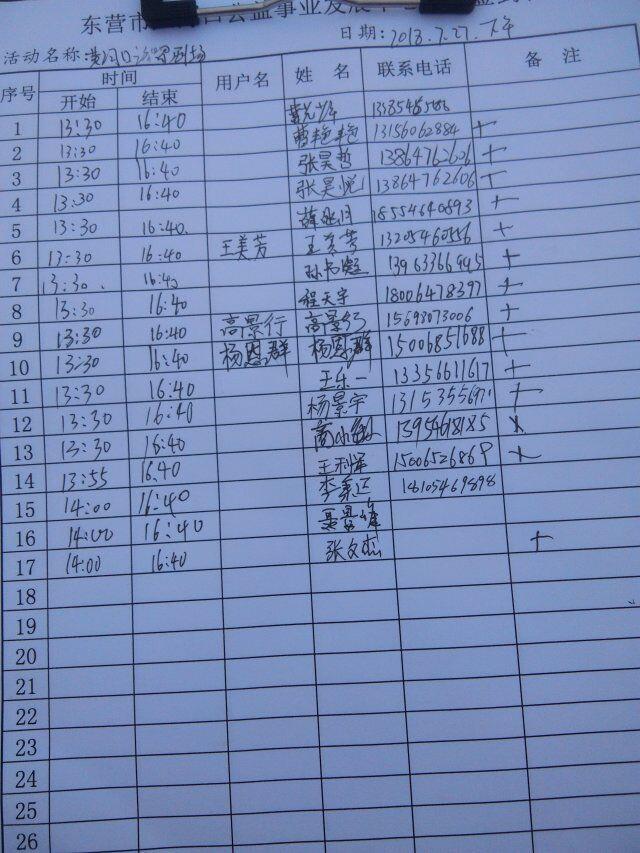 东营市 公益事业发展中
日期:2018.7.27.下午
活动名称:黄河口
序号 时间 用户名 姓名 联系电话 备注
开始 结束
1 13:30 16:40
2 13:30 16:40 曹艳艳 13156062884 +
3 13:30 16:40 张昊哲 13864762606 +
4 13:30 16:40 张昊悦 13864762606 +
5 13:30 16:40 18554640893 +
6 13:30 16:40 王美芳 王美芳 13205460556 +
7 13:30 16:40 +
8 13:30 16:40 程天宇 18006478397 +
9 13:30 16:40 高景行 高景行 15698073006 +
10 13:30 16:40 杨恩群 杨恩群 15006851688 +
11 13:30 16:40 王乐一 13356611617 +
12 13:30 16:40 杨景宇 +
13 13:30 16:40 x
14 13:55 16:40 王利泽 +
15 14:00 16:40 18105469898
16 14:00 16:40
17 14:00 16:40 张文杰 +
18
19
20
21
22
23
24
25
26